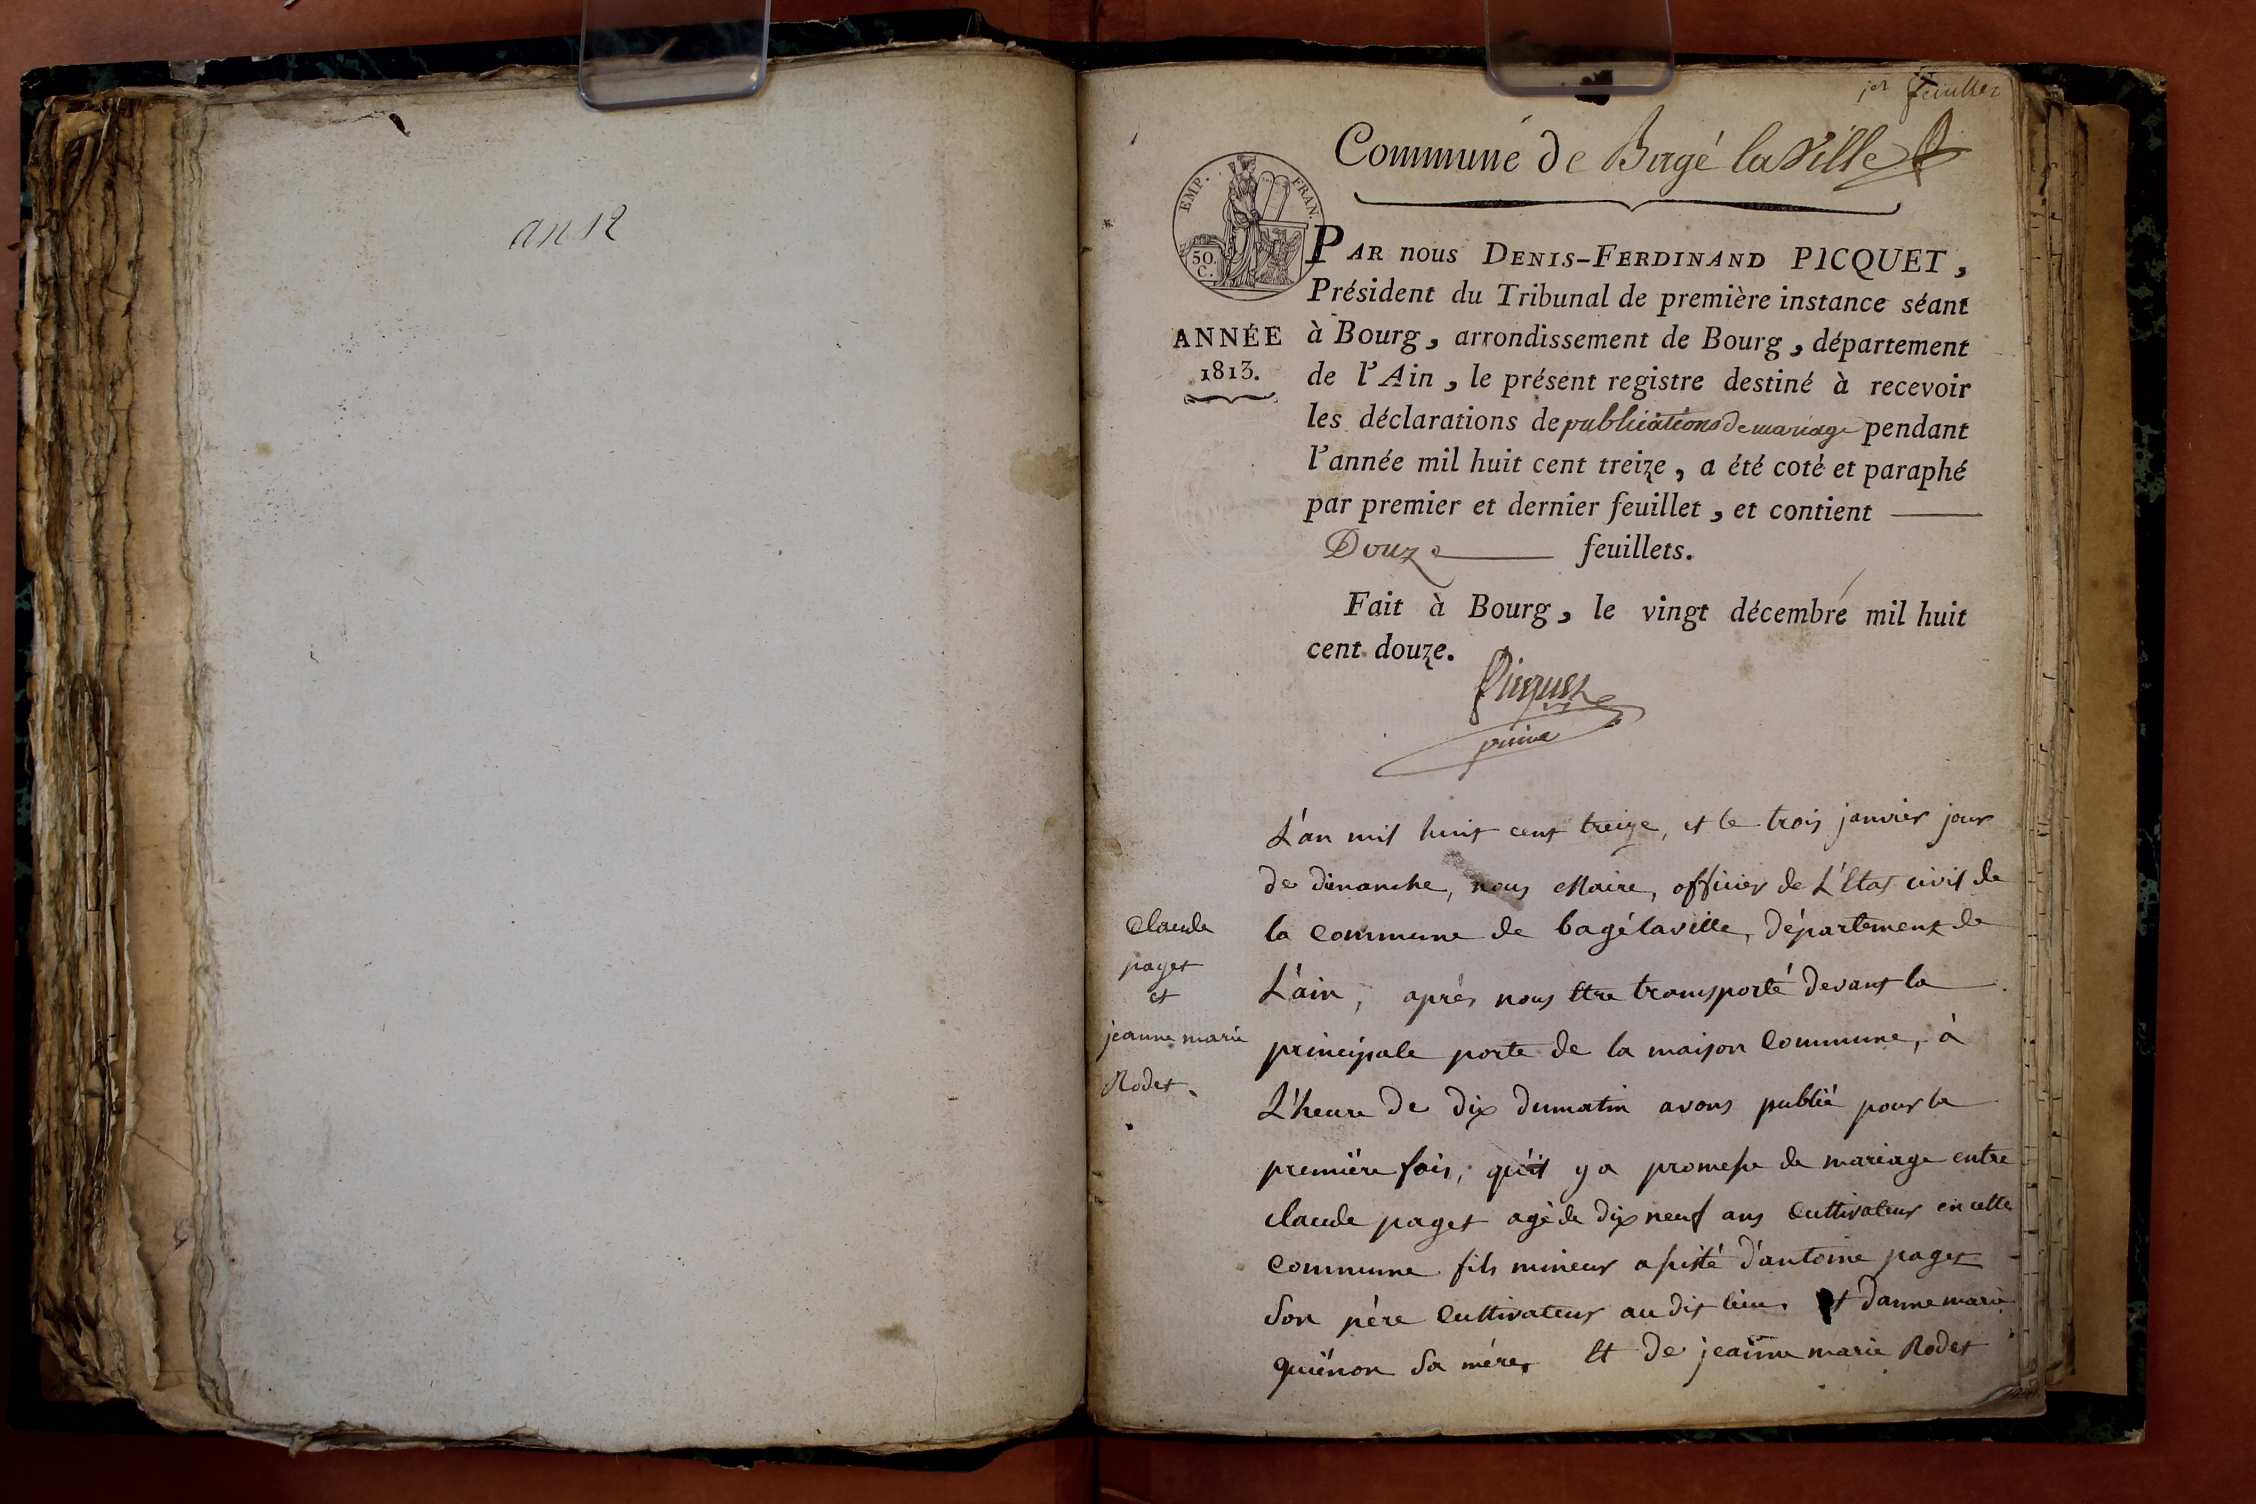 an 12
1er feuillet
Commune de Bagé la Ville
EMP. FRAN.
50.
C.
ANNÉE
1813.
PAR nous DENIS-FERDINAND PICQUET,
Président du Tribunal de première instance séant
à Bourg, arrondissement de Bourg, département
de l'Ain, le présent registre destiné à recevoir
les déclarations de publications de mariage pendant
l'année mil huit cent treize, a été coté et paraphé
par premier et dernier feuillet, et contient
Douze feuillets.
Fait à Bourg, le vingt décembre mil huit
cent douze.
Picquet
Claude
paget
et
jeanne marie
Rodet.
L'an mil huit cent treize, et le trois janvier jour
de dimanche, nous Maire, officier de L'Etat civil de
la Commune de bagélaville, département de
L'ain, après nous etre transporté devant la
principale porte de la maison Commune, à
L'heure de dix du matin avons publié pour la
première fois, qu'il y a promesse de mariage entre
claude paget agé de dix neuf ans Cultivateur en cette
Commune fils mineur assisté d'antoine paget
Son père Cultivateur au dit lieu. et d'anne marie
guénon Sa mère, Et de jeanne marie Rodet